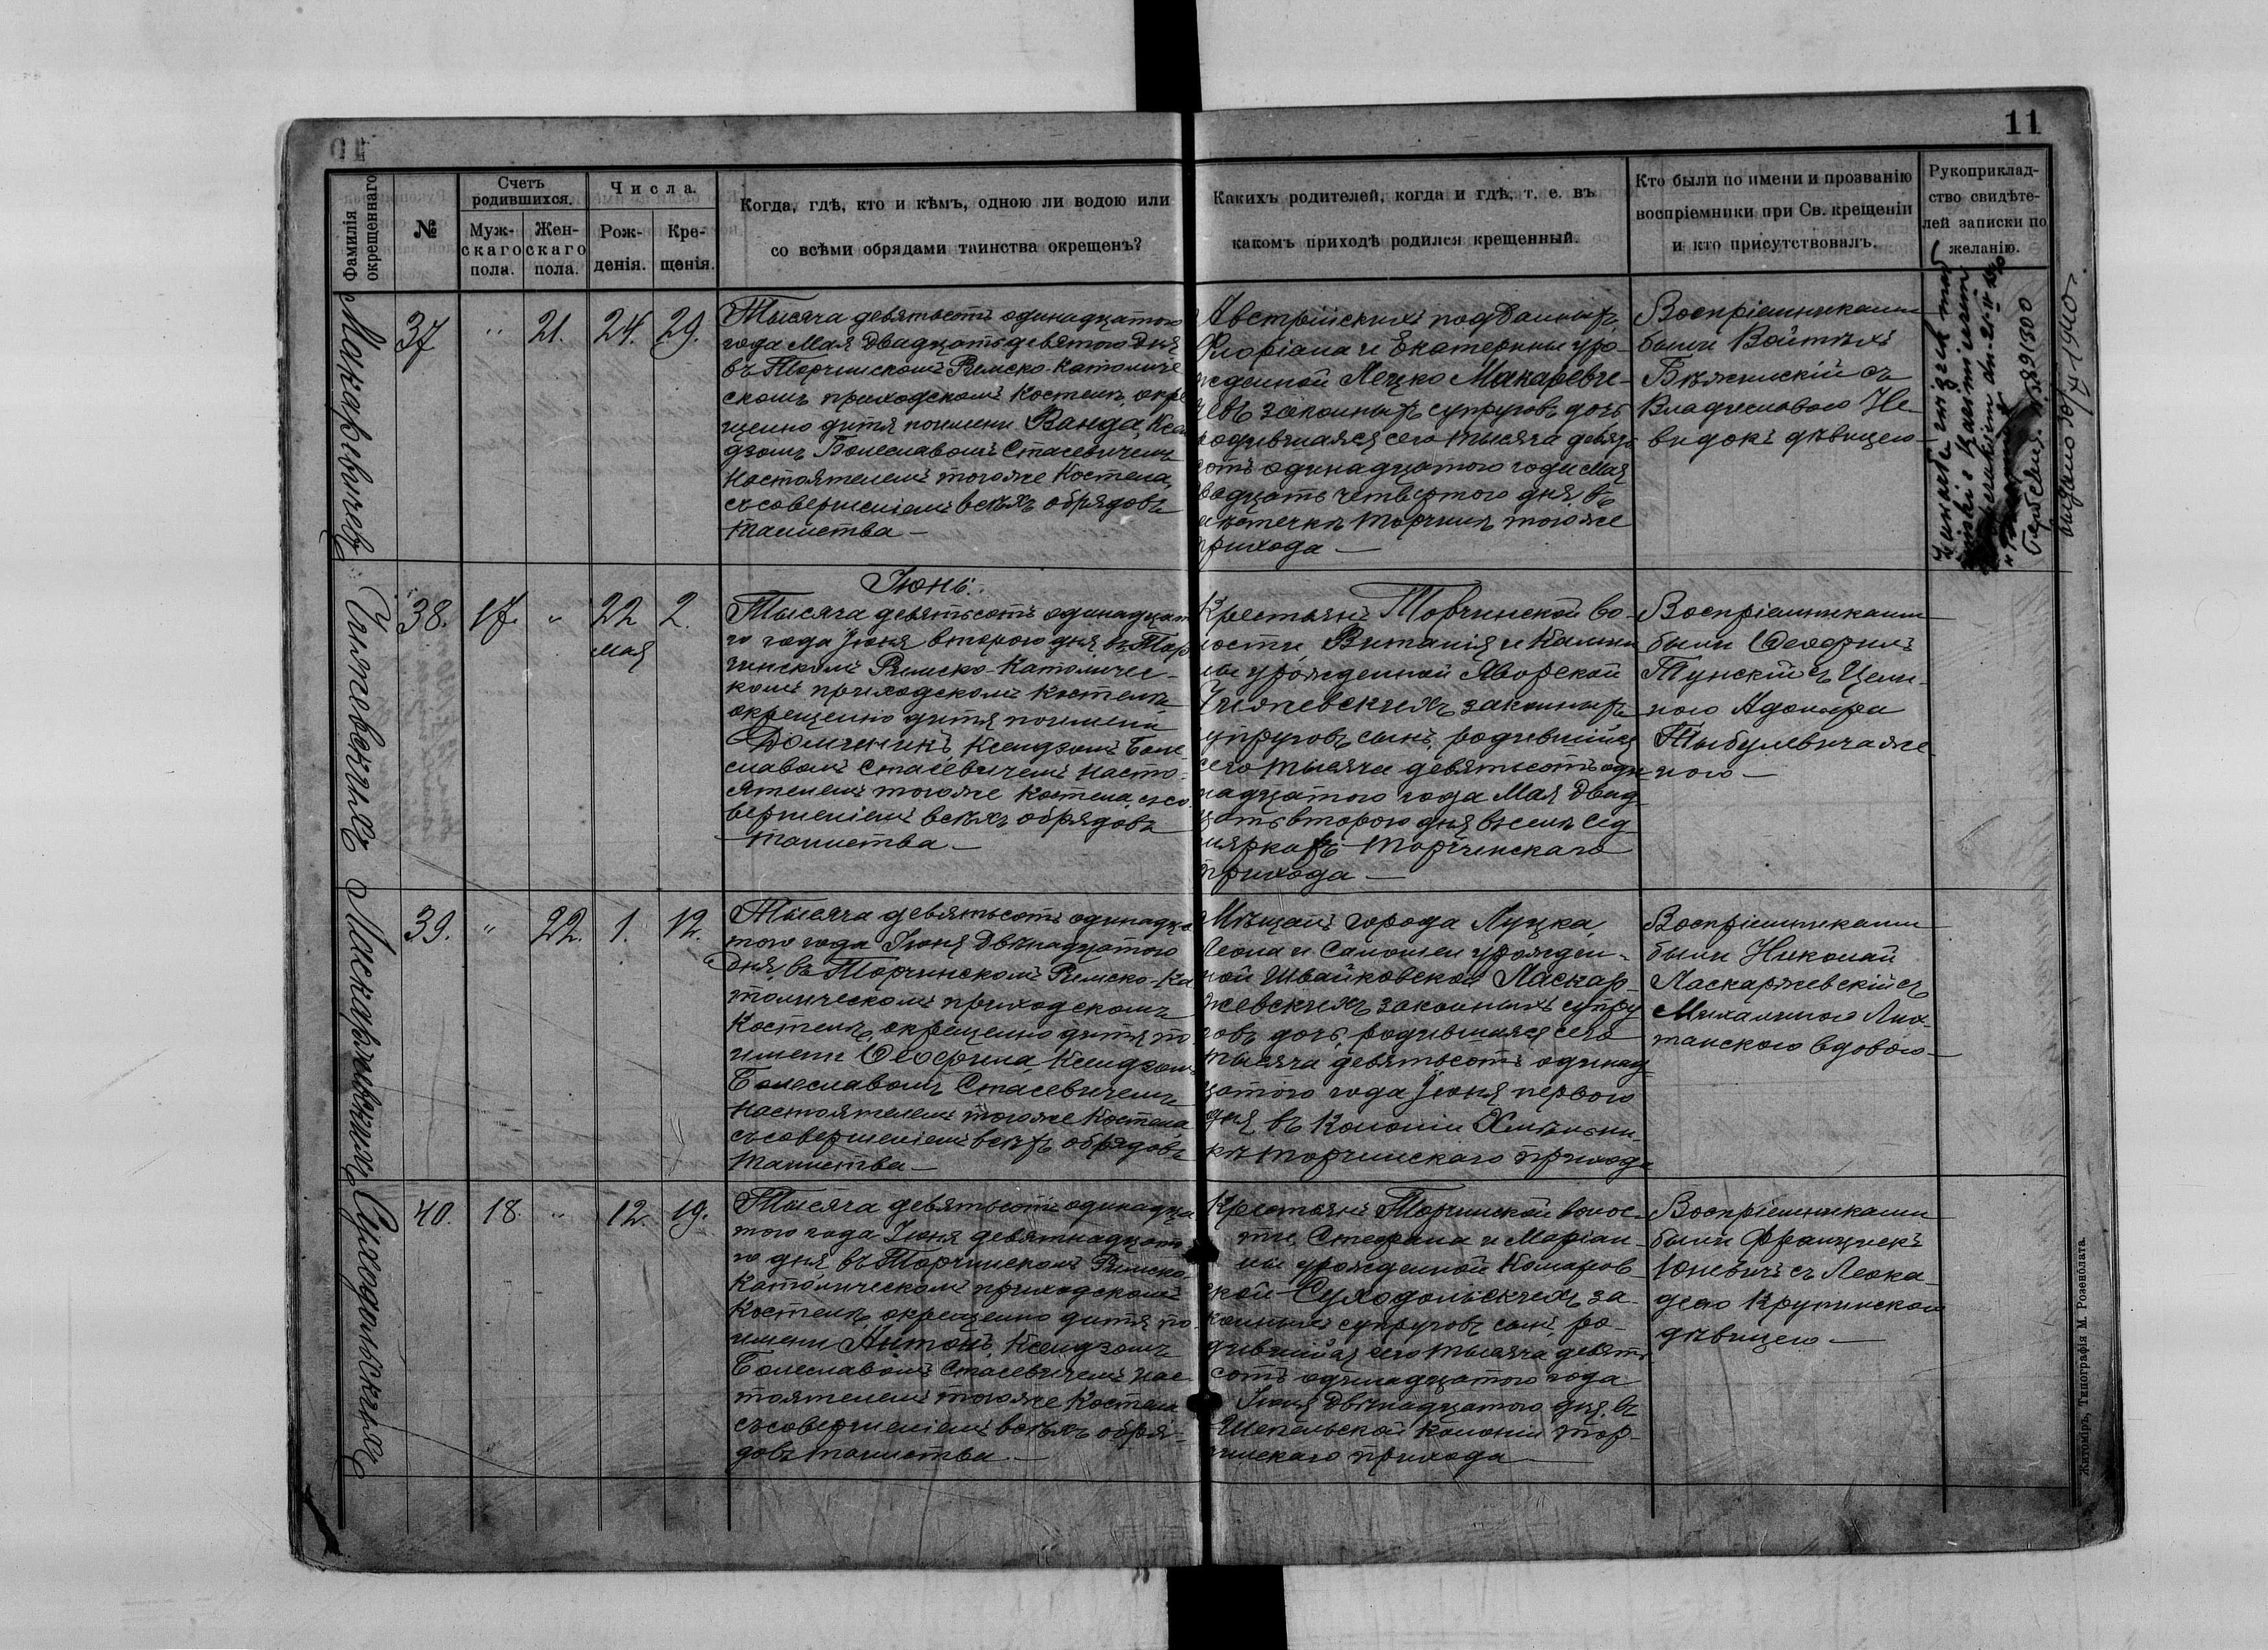 11
Фамилія окрещеннаго
№
Счетъ родившихся.
Муж-
скаго
пола.
Жен-
скаго
пола.
Числа.
Рож-
денія.
Кре-
щенія.
Когда, гдѣ, кто и кѣмъ, одною ли водою или
со всѣми обрядами таинства окрещенъ?
Какихъ родителей, когда и гдѣ, т. е. въ
какомъ приходѣ родился крещенный.
Кто были по имени и прозванію
воспріемники при Св. крещеніи
и кто присутствовалъ.
Рукоприклад-
ство свидѣте-
лей записки по
желанію.
Макаревичевъ
37
"
21.
24.
29.
Тысяча девятьсотъ одинадцатого
года Мая двадцать девятого дня
въ Торчинскомъ Римско-Католиче
скомъ приходскомъ Костелѣ, окре
щено дитя по имени Ванда, Ксен
дзомъ Болеславомъ Стасевичемъ
Настоятелемъ тогоже Костела,
съ совершеніемъ всѣхъ обрядовъ
таинства —
Австрійскихъ подданныхъ,
Флоріана и Екатерины уро-
жденной Лецко Макареви-
чевъ законныхъ супруговъ дочь
родившаяся сего тысяча девять
сотъ одинадцатого года Мая
двадцать четвертого дня, въ
мѣстечкѣ Торчинѣ тогоже
прихода —
Воспріемниками
были Войтѣхъ
съ
Владиславою Не-
видокъ дѣвицею —
выдано 10/IX 1940 г.
38.
17.
"
22
мая
2.
Іюнь.
Тысяча девятьсотъ одинадцат
го года Іюня второго дня, въ Тор
чинскомъ Римско-Католичес-
комъ приходскомъ костелѣ
окрещено дитя по имени
Доминикъ, Ксендзомъ Боле-
славомъ Стасевичемъ Насто-
ятелемъ тогоже костела, съ со
вершеніемъ всѣхъ обрядовъ
таинства —
Крестьянъ Торчинской во-
лости, Виталія и
ны урожденной Яворской
законныхъ
супруговъ сынъ, родившійся
сего тысяча девятьсотъ оди
надцатого года Мая двад
цать второго дня въ селѣ Сад
Торчинскаго
прихода —
Воспріемниками
были Теофилъ
Тунскій съ Цели-
ною Адольфа
же
ною —
Ласкаржевскихъ
39.
"
22.
1.
12.
Тысяча девятьсотъ одинадца
того года Іюня двѣнадцатого
дня, въ Торчинскомъ Римско-Ка
толическомъ приходскомъ
Костелѣ, окрещено дитя по
имени Теофила, Ксендзомъ
Болеславомъ Стасевичемъ
Настоятелемъ тогоже Костела
съ совершеніемъ всѣхъ обрядовъ
таинства —
Мѣщанъ города Луцка,
Леона и Саломеи урожден-
ной Швайковской Ласкар-
жевскихъ законныхъ супру
говъ дочь, родившаяся сего
тысяча девятьсотъ одинад
цатого года Іюня первого
дня въ Колоніи Хмѣльни-
кѣ Торчинскаго прихода
Воспріемниками
были Николай
Ласкаржевскій съ
Михалиною Лип-
танскою вдовою —
Суходольскихъ
40.
18.
"
12.
19.
Тысяча девятьсотъ одинадца
того года Іюня девятнадцато
го дня въ Торчинскомъ Римско-
Католическомъ приходскомъ
Костелѣ, окрещено дитя по
имени Антонъ, Ксендзомъ
Болеславомъ Стасевичемъ Нас-
тоятелемъ тогоже Костела
съ совершеніемъ всѣхъ обря-
довъ таинства —
Крестьянъ Торчинской волос-
ти, Стефана и Маріан-
ны урожденной Комаров-
ской Суходольскихъ за-
конныхъ супруговъ сынъ, ро-
дившійся сего тысяча девять
сотъ одинадцатого года
Іюня двѣнадцатого дня, въ
Шепельской Колоніи Тор-
чинскаго прихода —
Воспріемниками
были Францискъ
Юневичъ съ Леока-
діею Крупинскою
дѣвицею —
Житоміръ, Типографія М. Розенблата.